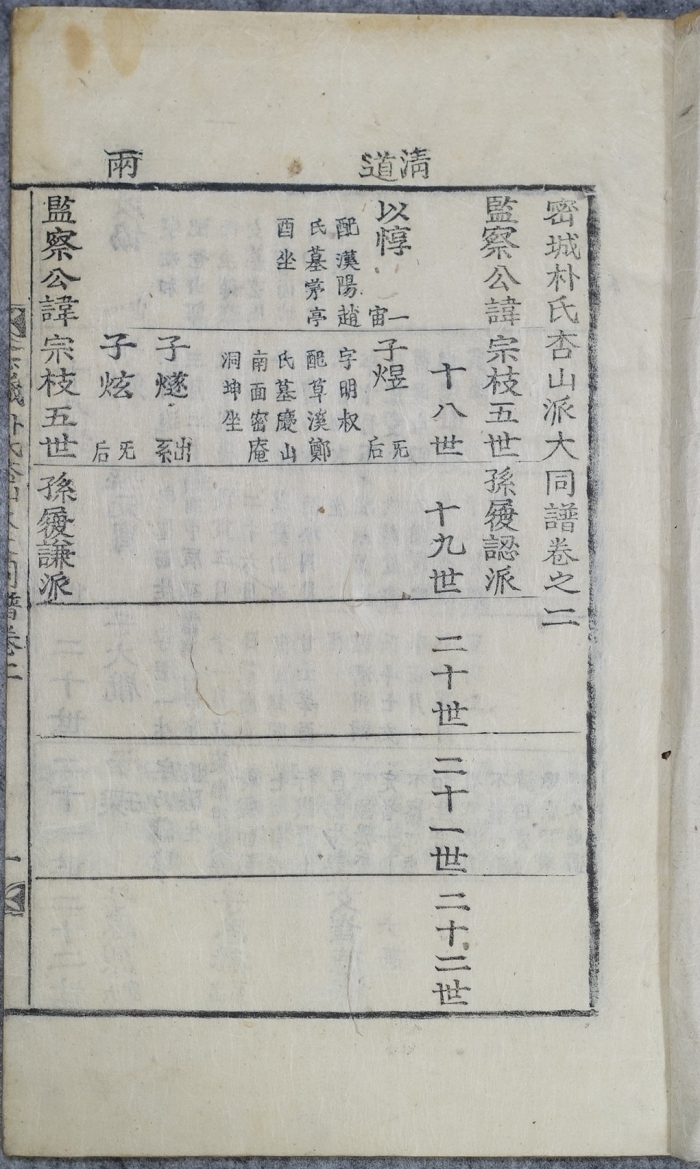 清道
兩
密城朴氏杏山派大同譜卷之二
監察公諱宗枝五世孫履認派
十八世
十九世
二十世
二十一世
二十二世
以惇
一宙
配漢陽趙
氏墓茅亭
酉坐
子煜
无后
字明叔
配草溪鄭
氏墓慶山
南面密庵
洞坤坐
子燧
出系
子炫
无后
監察公諱宗枝五世孫履謙派